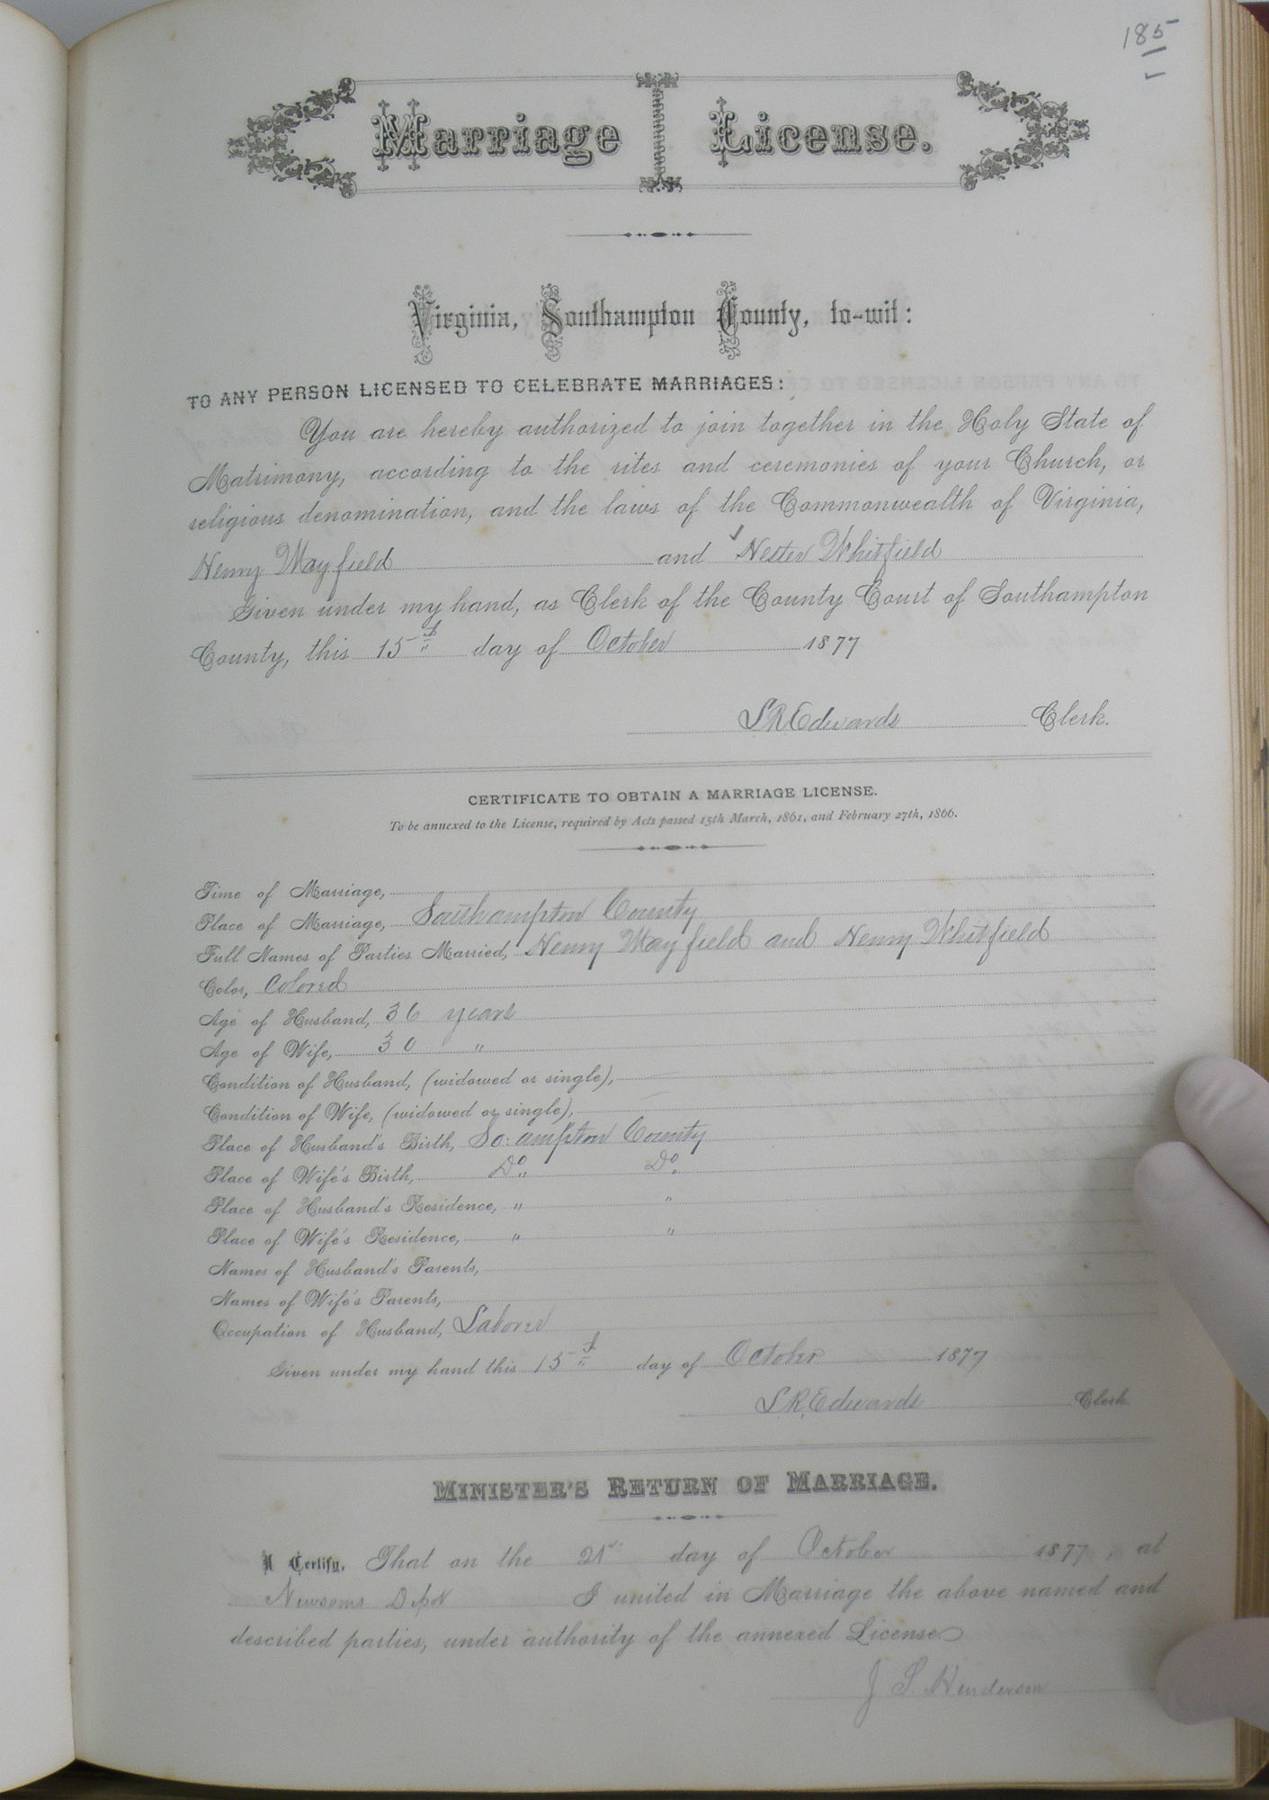 185
Marriage License.
Virginia, Southampton County, to-wit:
TO ANY PERSON LICENSED TO CELEBRATE MARRIAGES:
You are hereby authorized to join together in the Holy State of
Matrimony, according to the rites and ceremonies of your Church, or
religious denomination, and the laws of the Commonwealth of Virginia,
Henry Mayfield and Nester Whitfield
Given under my hand, as Clerk of the County Court of Southampton
County, this 15th day of October 1877
L R Edwards Clerk.
CERTIFICATE TO OBTAIN A MARRIAGE LICENSE.
To be annexed to the License, required by Acts passed 15th March, 1861, and February 27th, 1866.
Time of Marriage,
Place of Marriage, Southampton County
Full Names of Parties Married, Henry Mayfield and Henry Whitfield
Color, Colored
Age of Husband, 36 years
Age of Wife, 30 "
Condition of Husband, (widowed or single),
Condition of Wife, (widowed or single),
Place of Husband's Birth, So:ampton County
Place of Wife's Birth, Do Do
Place of Husband's Residence, " "
Place of Wife's Residence, " "
Names of Husband's Parents,
Names of Wife's Parents,
Occupation of Husband, Laborer
Given under my hand this 15th day of October 1877
L R. Edwards Clerk
MINISTER'S RETURN OF MARRIAGE.
I Certify, That on the 21st day of October 1877, at
Newsoms Depot I united in Marriage the above named and
described parties, under authority of the annexed License
J S. Henderson